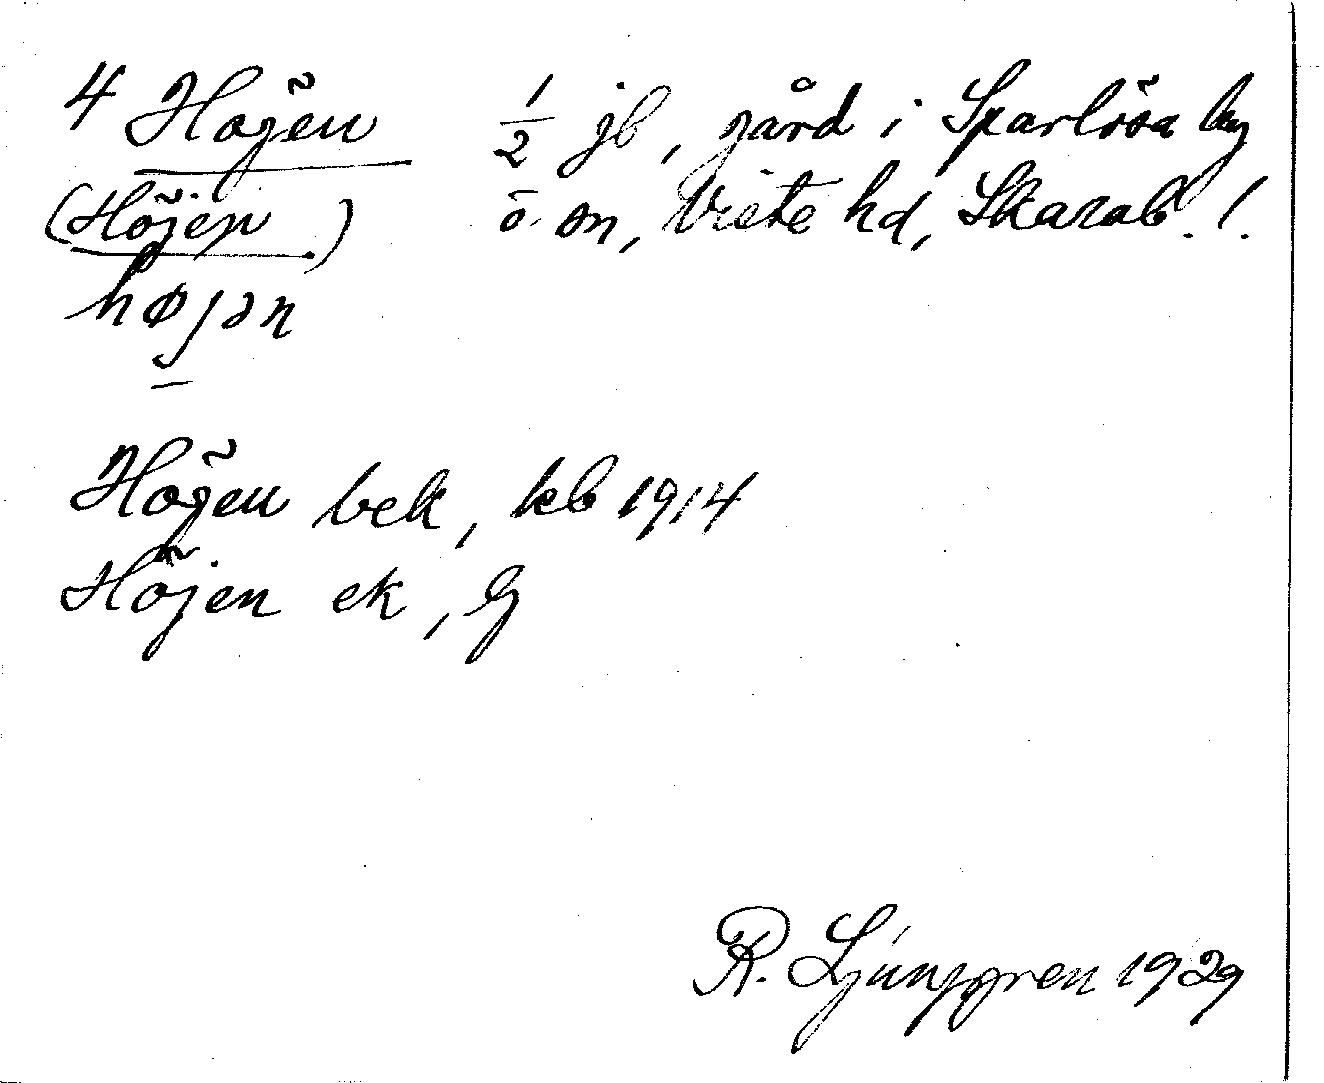 4 Högen ½ jb, gård i Sparlösa by
(Höjen) o. sn, Viste hd, Skarab. l.
højən
Högen bek, kb 1914
Höjen ek, G
R. Ljunggren 1929